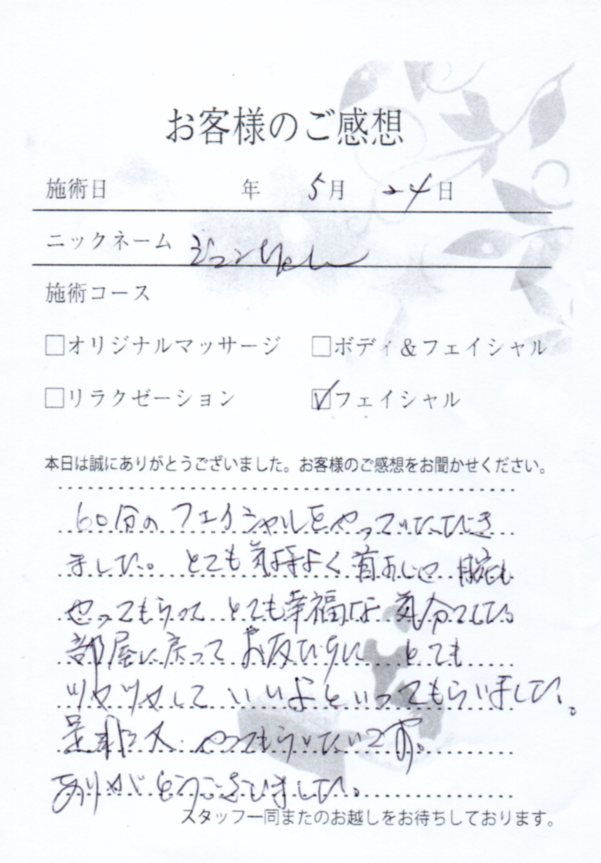 お客様のご感想
施術日 年 5月 24日
ニックネーム
施術コース
□オリジナルマッサージ □ボディ&フェイシャル
□リラクゼーション ☑フェイシャル
本日は誠にありがとうございました。お客様のご感想をお聞かせください。
60分のフェイシャルをやっていただき
ました。とても気持よく首や 腕も
やってもらって とても幸福な気分でした。
部屋に戻って お友だちに とても
ツヤツヤして いいよといってもらいました。
是非又 やってもらいたいです。
ありがとうございました。
スタッフ一同またのお越しをお待ちしております。